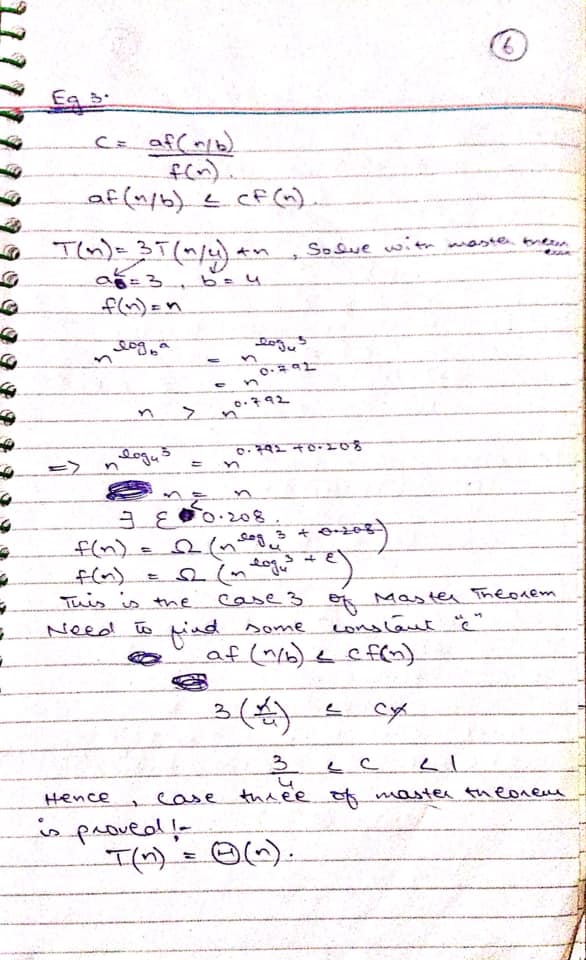 6
Eg 3.
c = af(n/b) / f(n).
af(n/b) ≤ cf(n).
T(n) = 3T(n/4) + n , Solve with master
a = 3 , b = 4
f(n) = n
n^{log_b a} = n^{log_4 3}
= n^{0.792}
n > n^{0.792}
=> n^{log_4 3} = n^{0.792 + 0.208}
n = n
∃ ε 0.208.
f(n) = Ω(n^{log_4 3 + 0.208})
f(n) = Ω(n^{log_4 3 + ε})
This is the case 3 of Master Theorem
Need to find some constant "c"
af(n/b) ≤ cf(n)
3(n/4) ≤ cn
3/4 ≤ c < 1
Hence , case three of master theorem
is proved!-
T(n) = Θ(n).